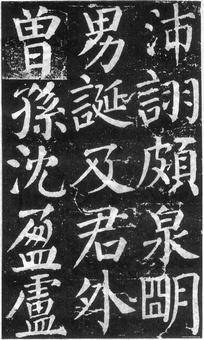 沛詡頗泉朙
男誕及君外
曾孫沈盈盧